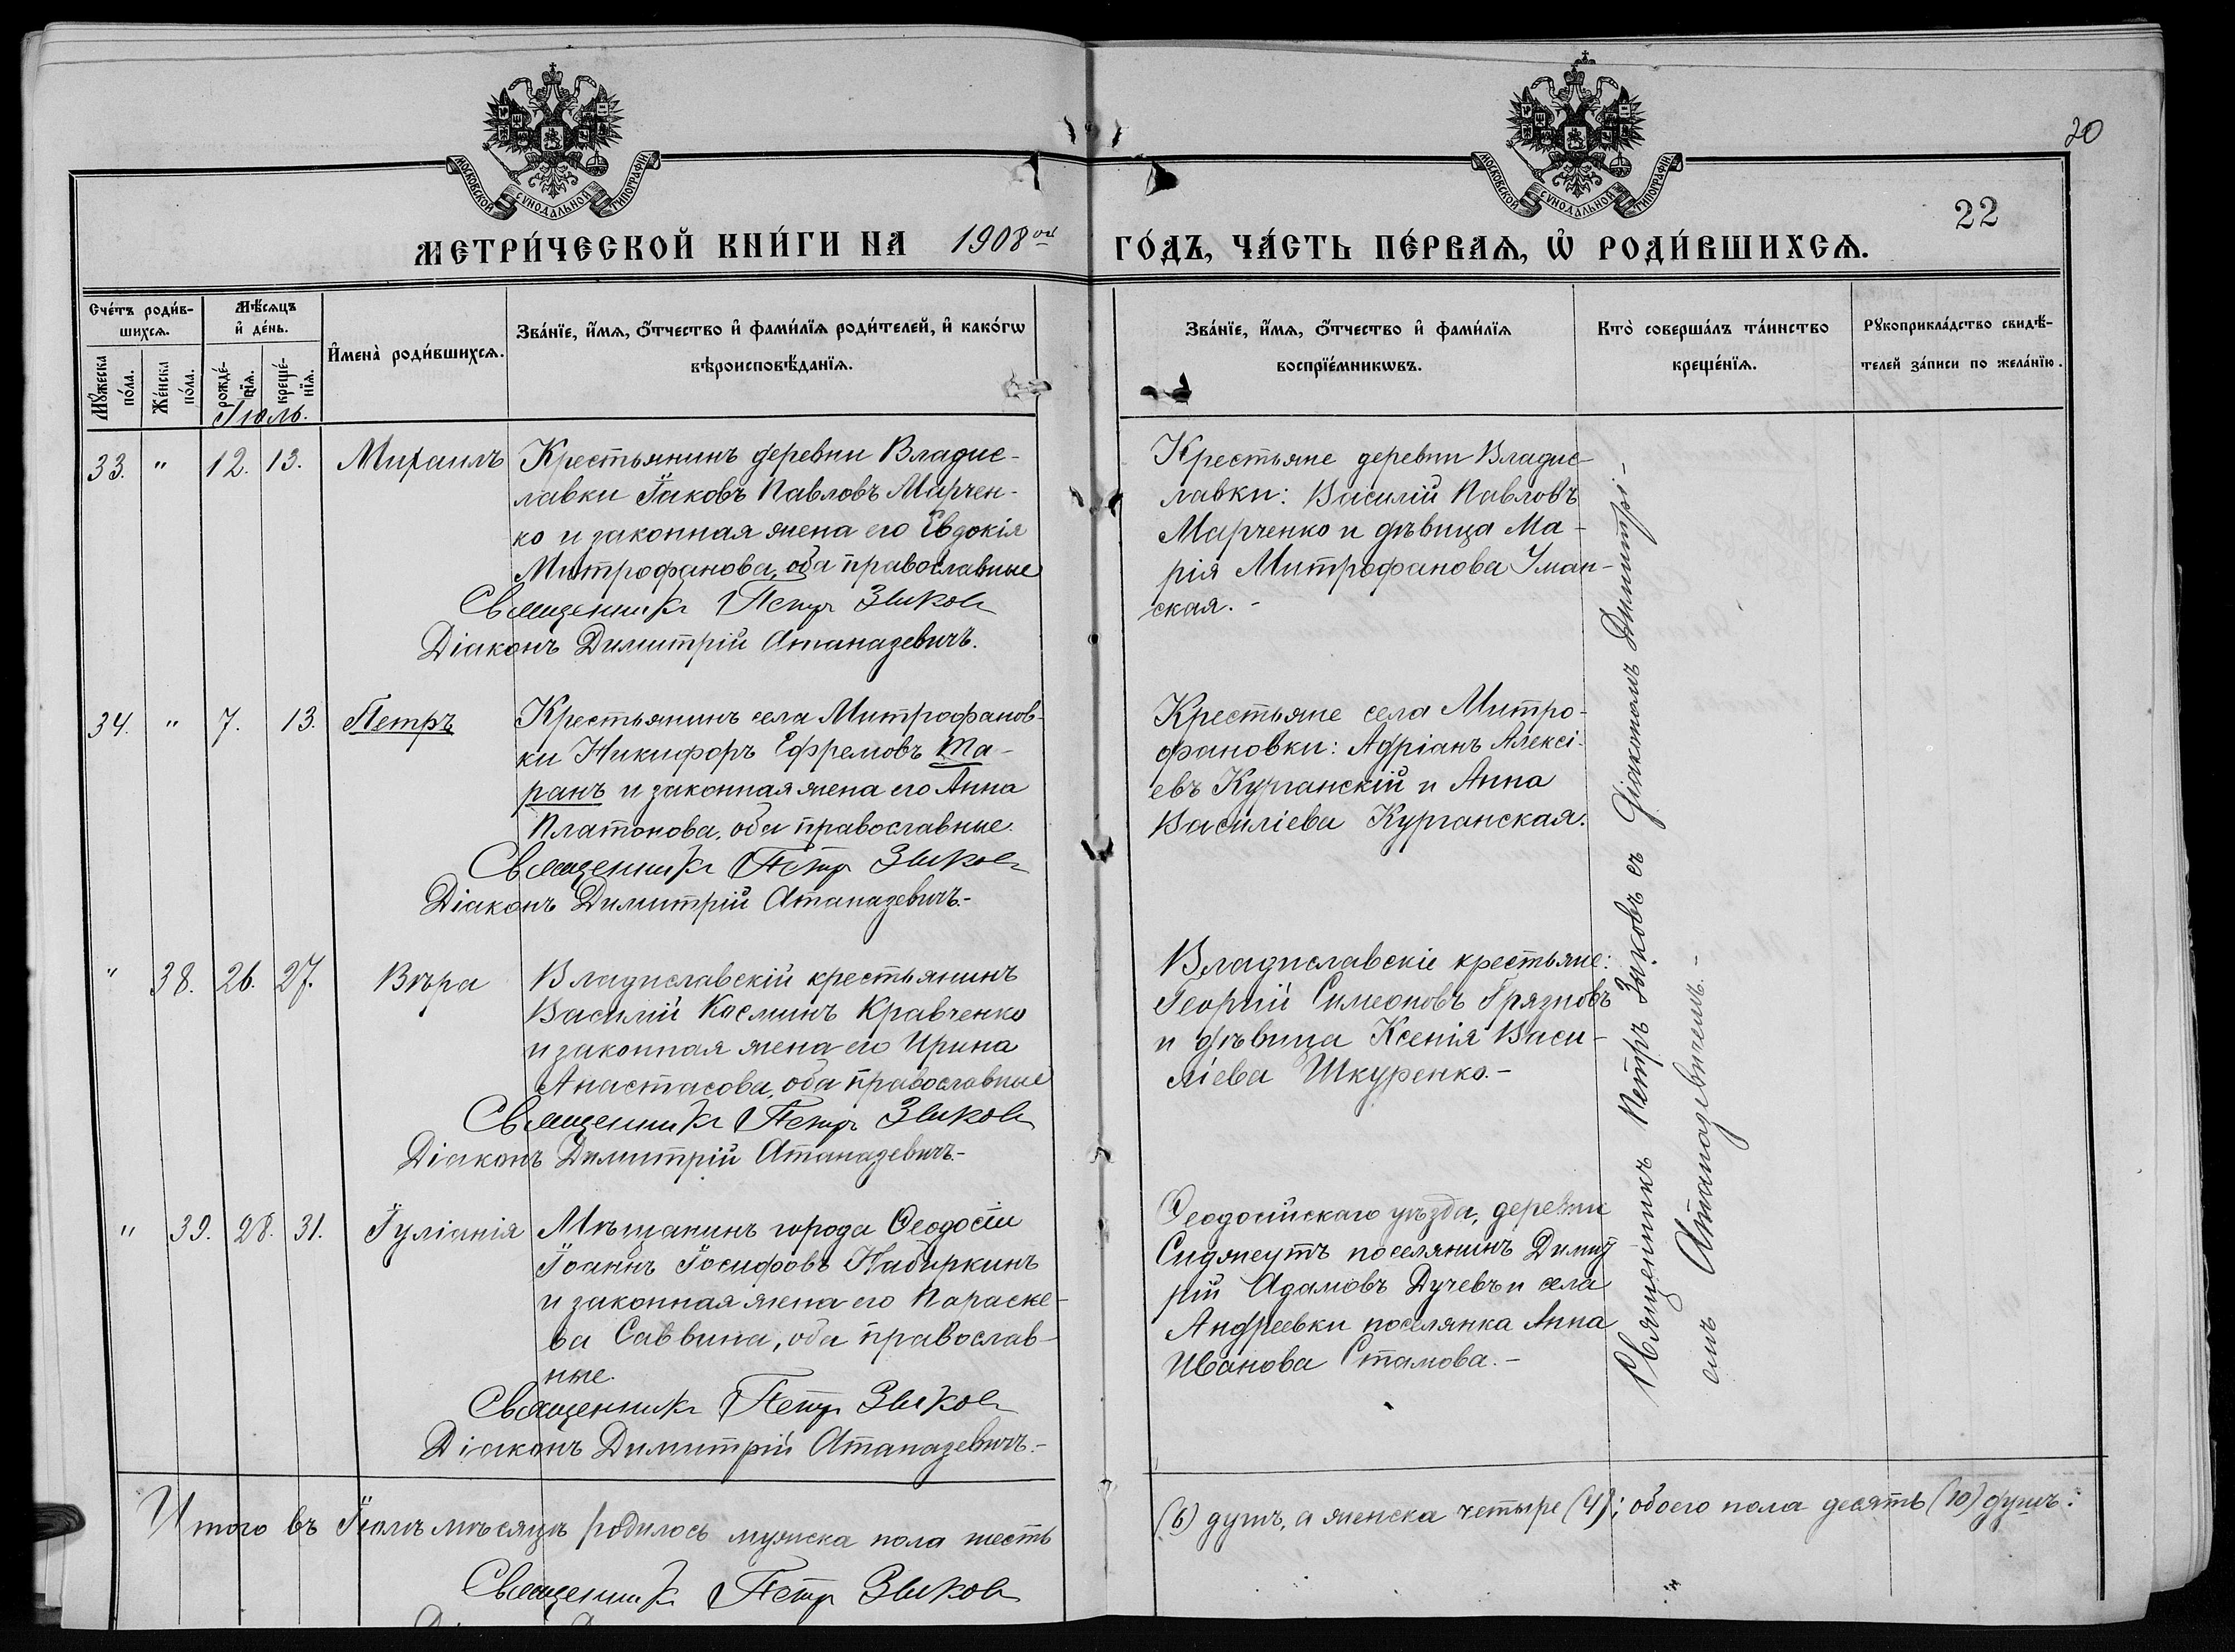 20
22
МОСКОВСКОЙ СѴНОДАЛЬНОЙ ТИПОГРАФІИ
МОСКОВСКОЙ СѴНОДАЛЬНОЙ ТИПОГРАФІИ
МЕТРИ́ЧЕСКОЙ КНИ́ГИ НА 1908ой ГО́ДЪ, ЧА́СТЬ ПЕ́РВАѦ, Ѡ҆ РОДИ́ВШИХСѦ.
Сче́тъ роди́в-
шихсѧ.
Мꙋ́жеска
по́ла.
Же́нска
по́ла.
Мѣ́сѧцъ
и҆ де́нь.
рожде́-
нїѧ.
креще́-
нїѧ.
И҆мена̀ роди́вшихсѧ.
Зва́нїе, и҆́мѧ, ѻ҆́тчество и҆ фами́лїѧ роди́телей, и҆ како́гѡ
вѣроисповѣ́данїѧ.
Зва́нїе, и҆́мѧ, ѻ҆́тчество и҆ фами́лїѧ
воспрїе́мникѡвъ.
Кто̀ соверша́лъ та́инство
креще́нїѧ.
Рꙋкоприкла́дство свидѣ́-
телей за́писи по жела́нїю.
Іюль.
33. " 12. 13. Михаилъ
Крестьянинъ деревни Владис-
лавки Іаковъ Павловъ Марчен-
ко и законная жена его Евдокія
Митрофанова, оба православные
Священникъ Петръ Зыковъ
Діаконъ Димитрій Атаназевичъ.
Крестьяне деревни Владис-
лавки: Василій Павловъ
Марченко и дѣвица Ма-
рія Митрофанова Уман-
ская.-
34. " 7. 13. Петръ
Крестьянинъ села Митрофанов-
ки Никифоръ Ефремовъ Та-
ранъ и законная жена его Анна
Платонова, оба православные.
Священникъ Петръ Зыковъ
Діаконъ Димитрій Атаназевичъ.-
Крестьяне села Митро-
фановки: Адріанъ Алексі-
евъ Курганскій и Анна
Василіева Курганская.
" 38. 26. 27. Вѣра
Владиславскій крестьянинъ
Василій Косминъ Кравченко
и законная жена его Ирина
Анастасова, оба православные
Священникъ Петръ Зыковъ
Діаконъ Димитрій Атаназевичъ.-
Владиславскіе крестьяне:
Георгій Симеоновъ Грязновъ
и дѣвица Ксенія Васи-
ліева Шкуренко.-
" 39. 28. 31. Іуліанія
Мѣщанинъ города Ѳеодосіи
Іоаннъ Іосифовъ Набиркинъ
и законная жена его Параске-
ва Саввина, оба православ-
ные.
Священникъ Петръ Зыковъ
Діаконъ Димитрій Атаназевичъ.-
Ѳеодосійскаго уѣзда, деревни
Сиджеутъ поселянинъ Димит
рій Адамовъ Дучевъ и села
Андреевки поселянка Анна
Иванова Стамова.-
Священникъ Петръ Зыковъ съ діакономъ Димитрі-
емъ Атаназевичемъ.-
Итого въ Іюлѣ мѣсяцѣ родилось мужска пола шесть
(6) душъ, а женска четыре (4); обоего пола десять (10) душъ.
Священникъ Петръ Зыковъ